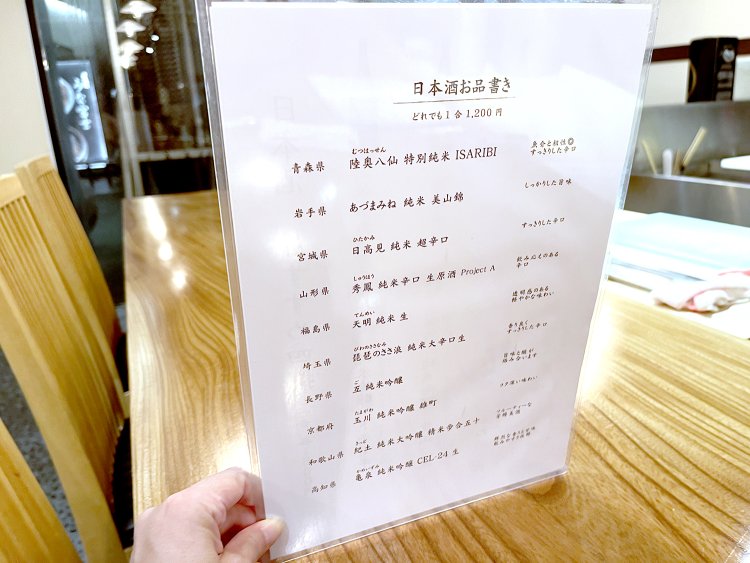 日本酒お品書き
どれでも1合1,200円
むつはっせん
青森県 陸奥八仙 特別純米 ISARIBI
魚介と相性◎
すっきりした辛口
岩手県 あづまみね 純米 美山錦
しっかりした旨味
ひたかみ
宮城県 日高見 純米 超辛口
すっきりした辛口
しゅうほう
山形県 秀鳳 純米辛口 生原酒 Project A
飲み応えのある
辛口
てんめい
福島県 天明 純米 生
透明感のある
軽やかな味わい
びわのささなみ
埼玉県 琵琶のささ浪 純米大辛口生
香り良く
すっきりした辛口
ご
長野県 互 純米吟醸
旨味と酸が
絡み合います
たまがわ
京都府 玉川 純米吟醸 雄町
コク深い味わい
きっど
和歌山県 紀土 純米大吟醸 精米歩合五十
フルーティーな
かめいずみ
高知県 亀泉 純米吟醸 CEL-24 生